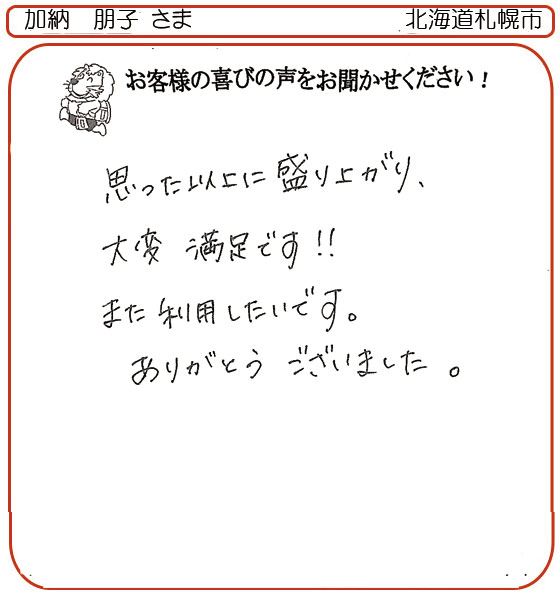 加納　朋子 さま　北海道札幌市
お客様の喜びの声をお聞かせください！
思った以上に盛り上がり、
大変 満足です!!
また利用したいです。
ありがとう ございました 。